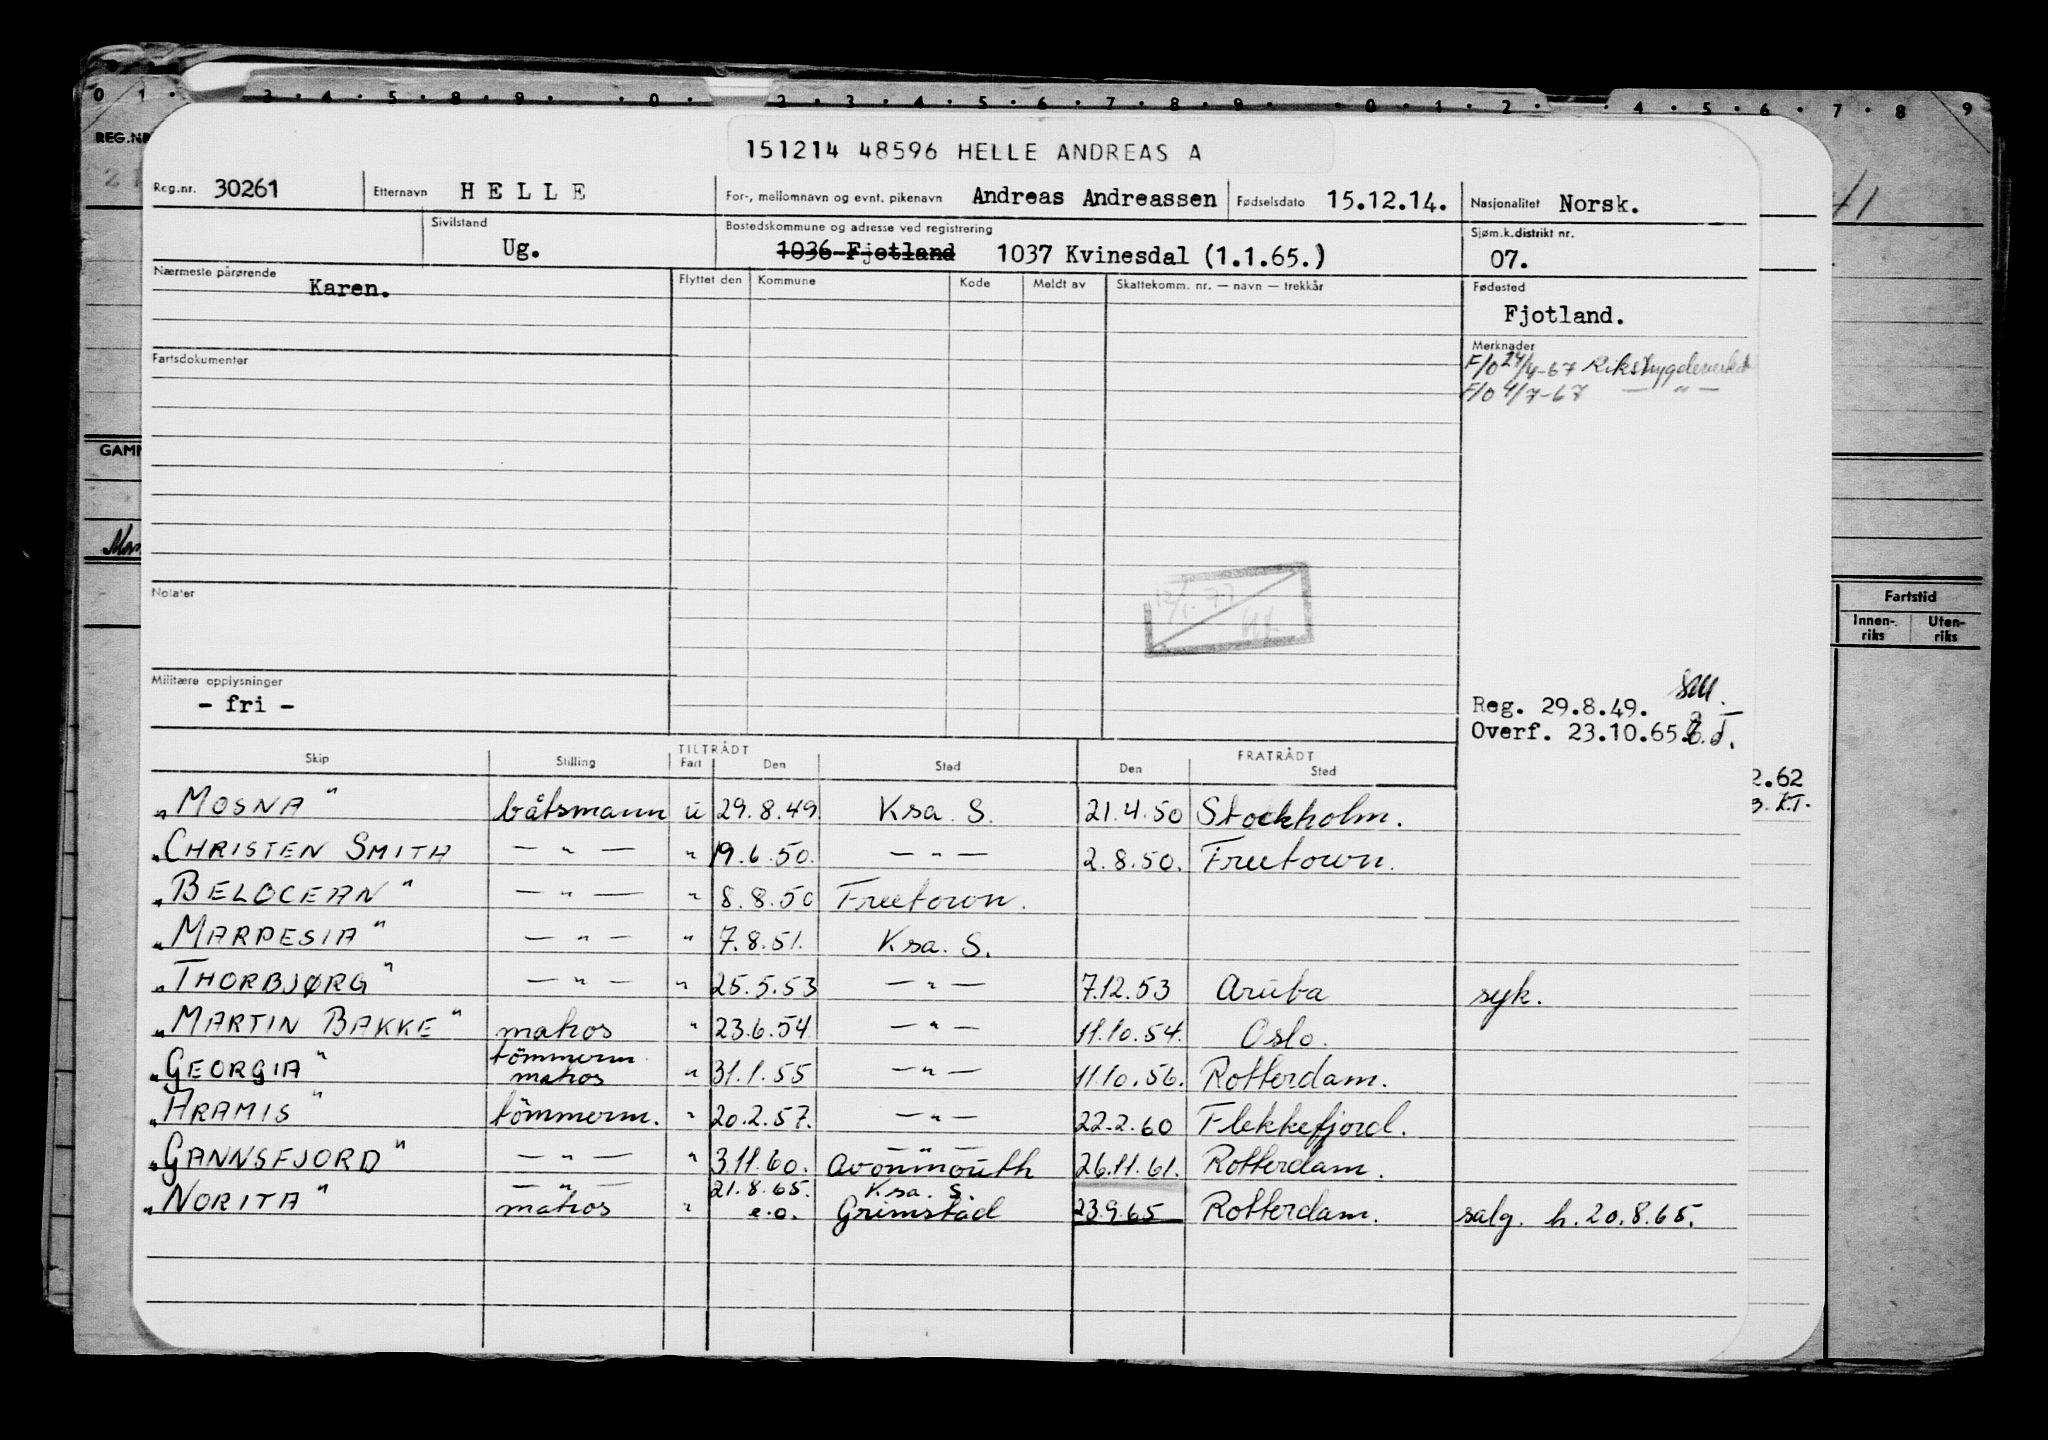 0 1 · 3 · 4 · 5 · 8 · 9 · · 0 · 2 · 3 · 4 · 5 · 6 · 7 · 8 · 9 · · 0 · 1 · 2 · · 4 · 5 · 6 · 7 · 8 9
REG.NR
151214 48596 HELLE ANDREAS A
Reg.nr. 30261 Etternavn HELLE For-, mellomnavn og evnt. pikenavn Andreas Andreassen Fødselsdato 15.12.14. Nasjonalitet Norsk.
Sivilstand Ug. Bostedskommune og adresse ved registrering 1036 Fjotland 1037 Kvinesdal (1.1.65.) Sjøm.k.distrikt nr. 07.
Nærmeste pårørende Karen. Flyttet den Kommune Kode Meldt av Skattekomm. nr. — navn — trekkår Fødested
Fjotland.
Merknader
F/O 24/4-67 Rikstrygdeverket
F/O 4/7-67 — " —
Fartsdokumenter
GAMM
Notater
12/1.77
Fartstid
Innen-riks Uten-riks
Militære opplysninger
- fri -
Reg. 29.8.49.
Overf. 23.10.65.
TILTRÅDT FRATRÅDT
Skip Stilling Fart Den Sted Den Sted
2.62
K.T.
"MOSNA" båtsmann u 29.8.49. Ksa. S. 21.4.50 Stockholm.
"CHRISTEN SMITH — " — " 19.6.50. — " — 2.8.50. Freetown.
"BELOCEAN" — " — " 8.8.50 Freetown.
"MARPESIA" — " — " 7.8.51. Ksa. S.
"THORBJØRG" — " — " 25.5.53 — " — 7.12.53 Aruba syk.
"MARTIN BAKKE" matros " 23.6.54. — " — 11.10.54. Oslo.
"GEORGIA" tömmerm. matros " 31.1.55 — " — 11.10.56. Rotterdam.
"ARAMIS" tömmerm. " 20.2.57. — " — 22.2.60 Flekkefjord.
"GANNSFJORD" — " — " 3.11.60. — " — Avonmouth 26.11.61. Rotterdam.
"NORITA" — " — matros " 21.8.65. e.o. Ksa. S. Grimstad 23.9.65 Rotterdam. salg. h. 20.8.65.